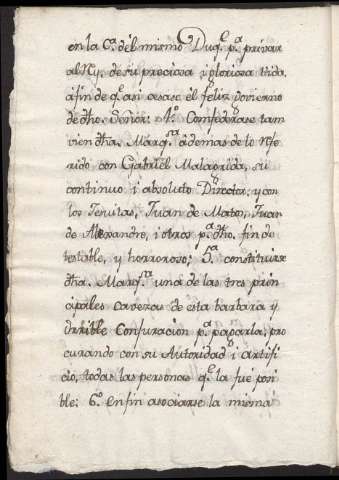 en la C.ª del mismo Duq.e p.ª privar
al Rey, de su preciosa i gloriosa vida,
a fin de q.e asi cesase el feliz Govierno
de dho. Señor: 4.º Confederarse tam
vien dha. Marq.sa ademas de lo refe
rido con Gabriel Malagrida, su
continuo i absoluto Director; y con
los Jesuitas, Juan de Matos, Juan
de Alexandro, i otros p.ª dho. fin de
testable, y horroroso; 5.º constituirse
dha. Marq.sa una de las tres prin
cipales cavezas de esta barbara y
orrible Conjuracion p.ª
curando con su Autoridad i artifi
cio, todas las personas q.e la fue posi
ble: 6.º en fin asociarse la misma